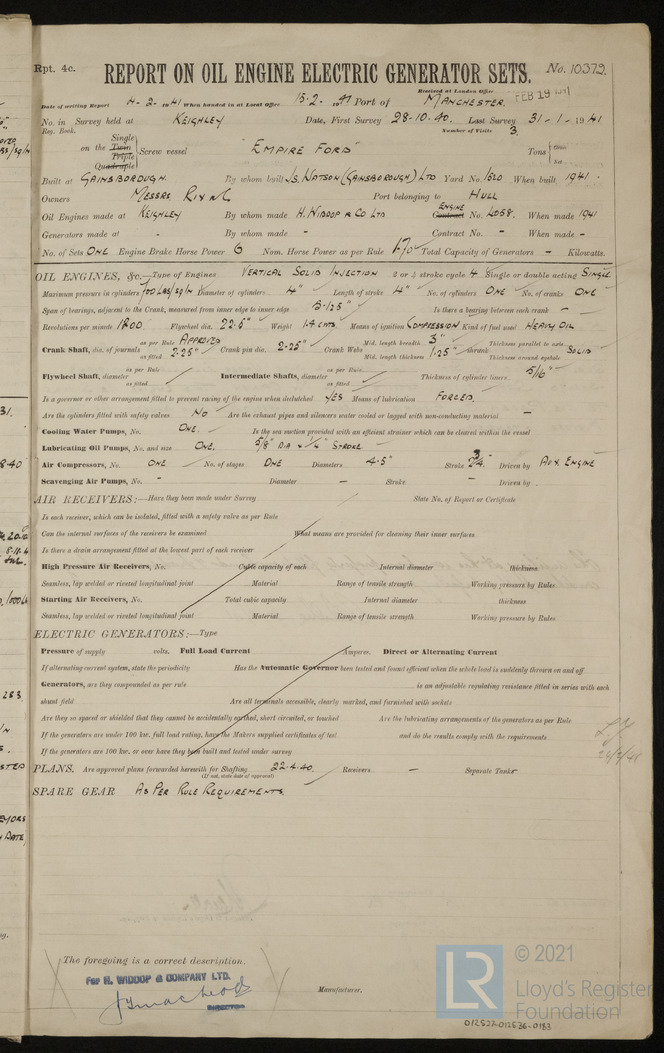 Rpt. 4c.
REPORT ON OIL ENGINE ELECTRIC GENERATOR SETS.
No. 10372.
Received at London Office FEB 19 1941
Date of writing Report 4-2-1941 When handed in at Local Office 15-2-1941 Port of MANCHESTER.
No. in Survey held at KEIGHLEY Date, First Survey 28-10-40. Last Survey 31-1-1941
Reg. Book. Number of Visits 3.
Single
on the Twin Screw vessel "EMPIRE FORD" Tons
Triple
Quadruple
Built at GAINSBOROUGH. By whom built JS. WATSON (GAINSBOROUGH) LTD Yard No. 1520 When built 1941.
Owners MESSRS Port belonging to HULL
Oil Engines made at KEIGHLEY By whom made H. WIDDOP & CO LTD ENGINE Contract No. 4058. When made 1941
Generators made at - By whom made - Contract No. - When made -
No. of Sets ONE Engine Brake Horse Power 6 Nom. Horse Power as per Rule Total Capacity of Generators - Kilowatts.
OIL ENGINES, &c.—Type of Engines VERTICAL SOLID INJECTION 2 or 4 stroke cycle 4 Single or double acting SINGLE
Maximum pressure in cylinders 700 LBS/SQ IN Diameter of cylinders 4" Length of stroke 4" No. of cylinders ONE No. of cranks ONE
Span of bearings, adjacent to the Crank, measured from inner edge to inner edge Is there a bearing between each crank -
Revolutions per minute 1200 Flywheel dia. 22.5" Weight 1.4 CWTS. Means of ignition COMPRESSION Kind of fuel used HEAVY OIL
Crank Shaft, dia. of journals as per Rule APPROVED as fitted 2.25" Crank pin dia. 2.25" Crank Webs Mid. length breadth 3" Mid. length thickness 1.25" shrunk Thickness parallel to axis Thickness around eyehole SOLID
Flywheel Shaft, diameter as per Rule as fitted Intermediate Shafts, diameter as per Rule as fitted Thickness of cylinder liners 5/16"
Is a governor or other arrangement fitted to prevent racing of the engine when declutched YES Means of lubrication FORCED.
Are the cylinders fitted with safety valves NO Are the exhaust pipes and silencers water cooled or lagged with non-conducting material -
Cooling Water Pumps, No. ONE. Is the sea suction provided with an efficient strainer which can be cleared within the vessel
Lubricating Oil Pumps, No. and size ONE. 5/8" DIA x 1/4" STROKE
Air Compressors, No. ONE No. of stages ONE Diameters 4.5" Stroke Driven by AUX. ENGINE
Scavenging Air Pumps, No. - Diameter - Stroke - Driven by -
AIR RECEIVERS:—Have they been made under Survey State No. of Report or Certificate
Is each receiver, which can be isolated, fitted with a safety valve as per Rule
Can the internal surfaces of the receivers be examined What means are provided for cleaning their inner surfaces
Is there a drain arrangement fitted at the lowest part of each receiver
High Pressure Air Receivers, No. Cubic capacity of each Internal diameter thickness
Seamless, lap welded or riveted longitudinal joint Material Range of tensile strength Working pressure by Rules
Starting Air Receivers, No. Total cubic capacity Internal diameter thickness
Seamless, lap welded or riveted longitudinal joint Material Range of tensile strength Working pressure by Rules
ELECTRIC GENERATORS:—Type
Pressure of supply volts. Full Load Current Amperes. Direct or Alternating Current
If alternating current system, state the periodicity Has the Automatic Governor been tested and found efficient when the whole load is suddenly thrown on and off
Generators, are they compounded as per rule is an adjustable regulating resistance fitted in series with each
shunt field Are all terminals accessible, clearly marked, and furnished with sockets
Are they so spaced or shielded that they cannot be accidentally earthed, short circuited, or touched Are the lubricating arrangements of the generators as per Rule
If the generators are under 100 kw. full load rating, have the Makers supplied certificates of test and do the results comply with the requirements
If the generators are 100 kw. or over have they been built and tested under survey
PLANS. Are approved plans forwarded herewith for Shafting 22.4.40. Receivers - Separate Tanks
(If not, state date of approval)
SPARE GEAR AS PER RULE REQUIREMENTS.
The foregoing is a correct description.
FOR H. WIDDOP & COMPANY LTD.
DIRECTOR
Manufacturer.
LR
© 2021
Lloyd's Register
Foundation
012527-012536-0183